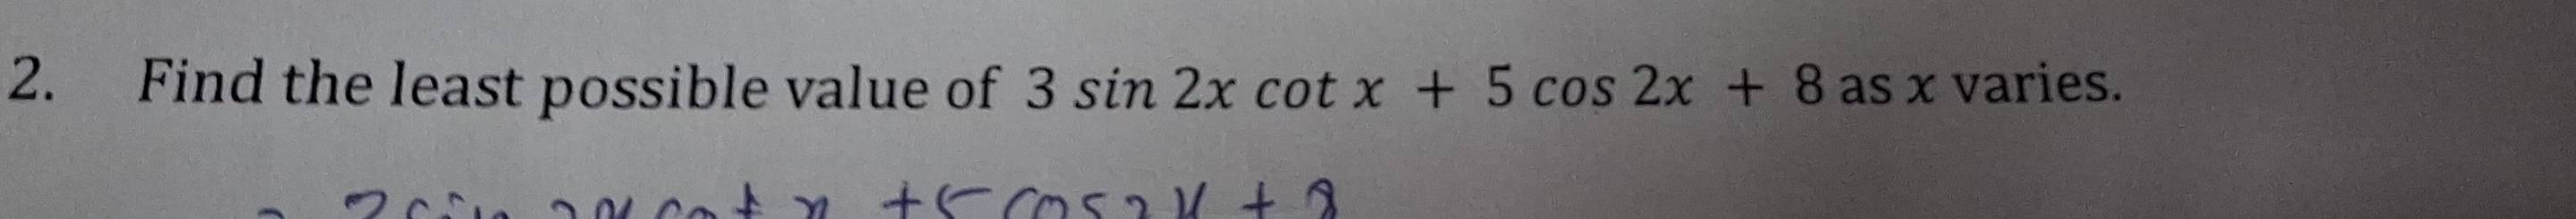 2. Find the least possible value of 3 sin 2x cot x + 5 cos 2x + 8 as x varies.
3 sin 2x cot x + 5 cos 2x + 8